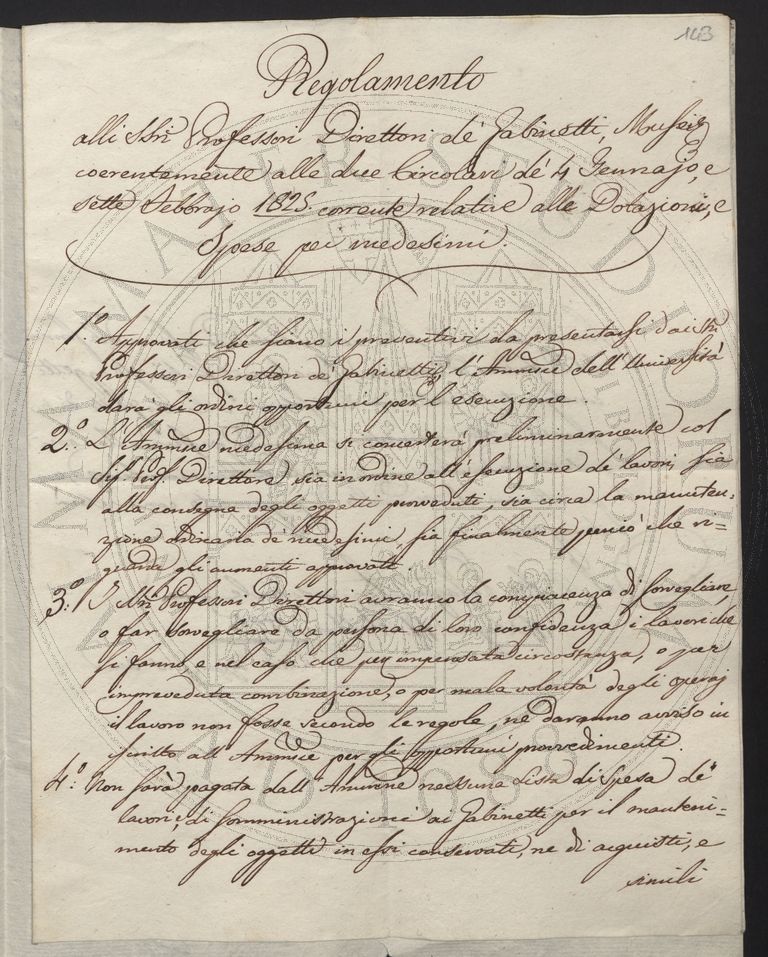 143
Regolamento
alli SSri Professori Direttori de' Gabinetti, Musei,
coerentemente alle due Circolari de' 4 Gennajo, e
sette Febbrajo 1825 corrente relative alle Dotazioni, e
Spese pei medesimi.
1.o Approvati che siano i preventivi da presentarsi dai SSri
Professori Direttori de' Gabinetti, l'Ammne dell'Università
darà gli ordini opportuni per l'esecuzione.
2.o L'Ammne medesima si concerterà preliminarmente col
Sigr Prof. Direttore sia in ordine all'esecuzione de' lavori, sia
alla consegna degli oggetti provveduti, sia circa la manuten-
zione ordinaria de' medesimi, sia finalmente perciò che ri-
guarda gli aumenti approvati.
3.o I SSri Professori Direttori avranno la compiacenza di sorvegliare,
o far sorvegliare da persona di loro confidenza i lavori che
si fanno, e nel caso che per impensata circostanza, o per
impreveduta combinazione, o per mala volontà degli operaj
il lavoro non fosse secondo le regole, ne daranno avviso in
iscritto all'Ammne per gli opportuni provvedimenti.
4.o Non sarà pagata dall'Ammne nessuna Lista di Spesa de'
lavori, di somministrazioni ai Gabinetti per il manteni-
mento degli oggetti in essi conservati, ne di acquisti, e
simili
ALMA MATER STUDIORUM
A.D. 1088